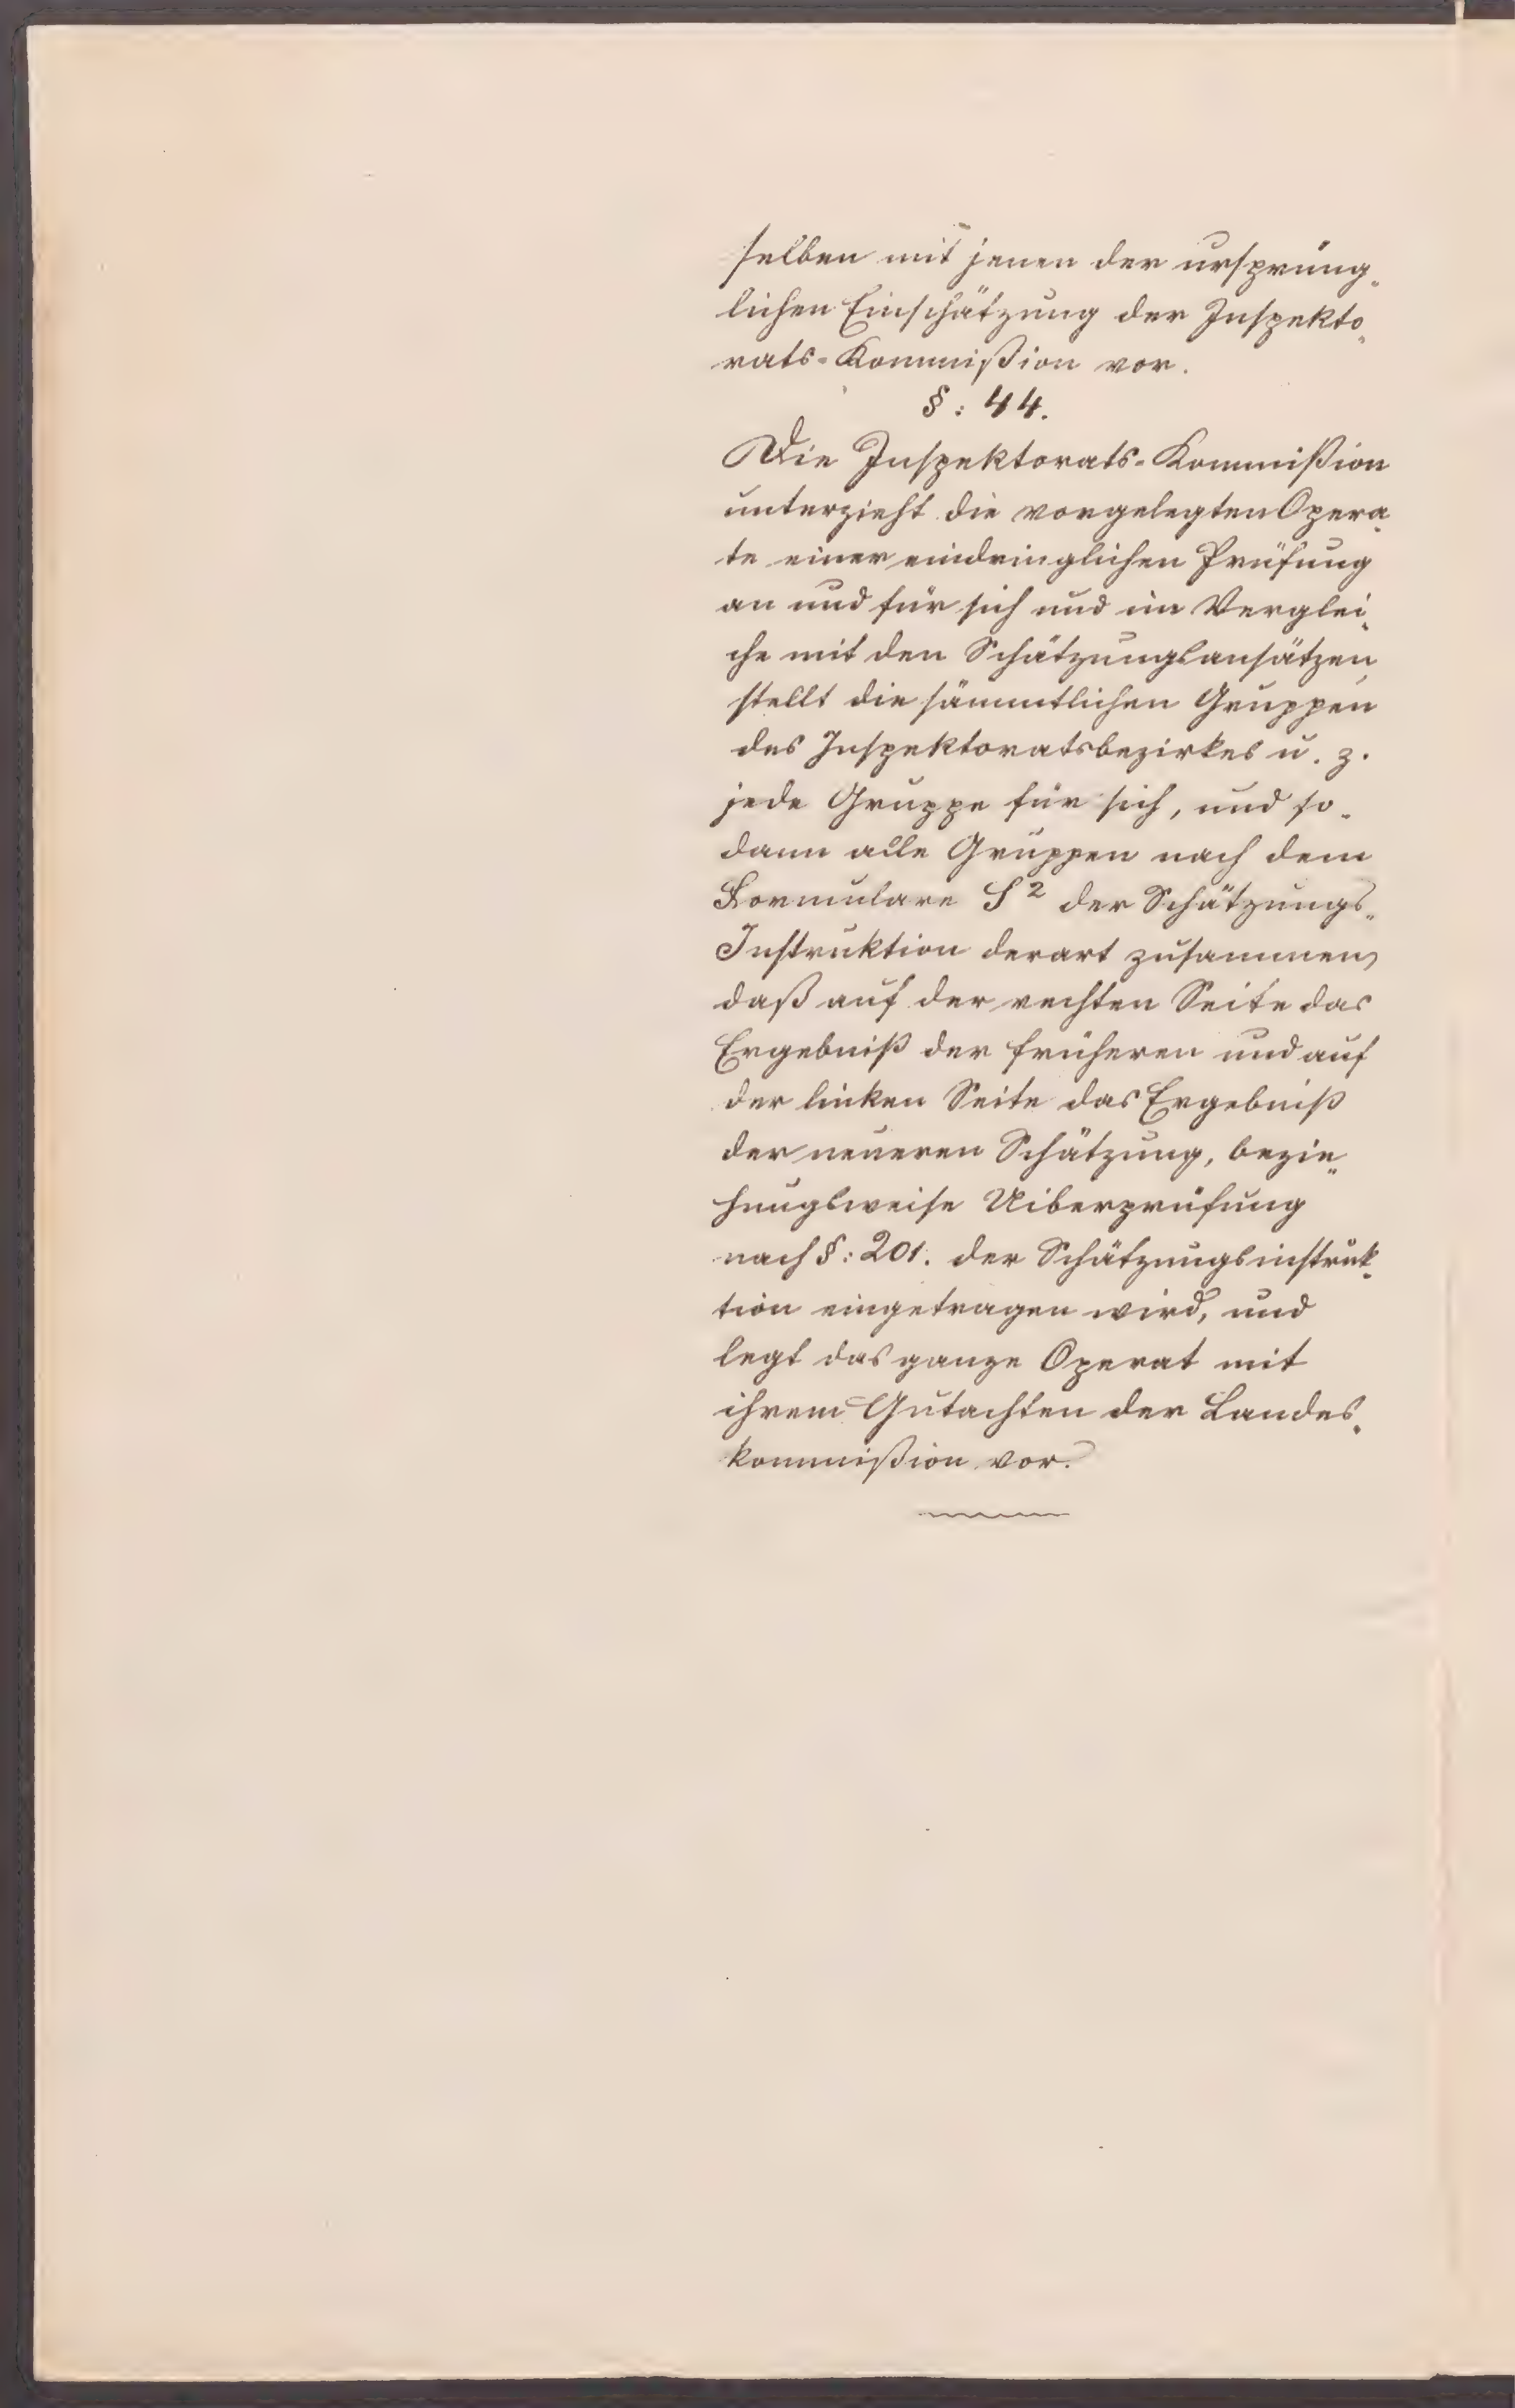 selben mit jenen der ursprüng„
lichen Einschätzung der Inspekto„
rats-Kommißion vor.
§: 44.
Die Inspektorats-Kommißion
unterzieht die vorgelegten Opera„
te einer eindringlichen Prüfung
an und für sich und im Verglei„
che mit den Schätzungsansätzen,
stellt die sämmtlichen Gruppen
des Inspektoratsbezirkes u. z.
jede Gruppe für sich, und so„
dann alle Gruppen nach dem
Formulare S² der Schätzungs„
Instruktion derart zusammen,
daß auf der rechten Seite das
Ergebniß der früheren und auf
der linken Seite das Ergebniß
der neueren Schätzung, bezie„
hungsweise Uiberprüfung
nach §: 201. der Schätzungsinstruk„
tion eingetragen wird, und
legt das ganze Operat mit
ihrem Gutachten der Landes„
kommißion vor.